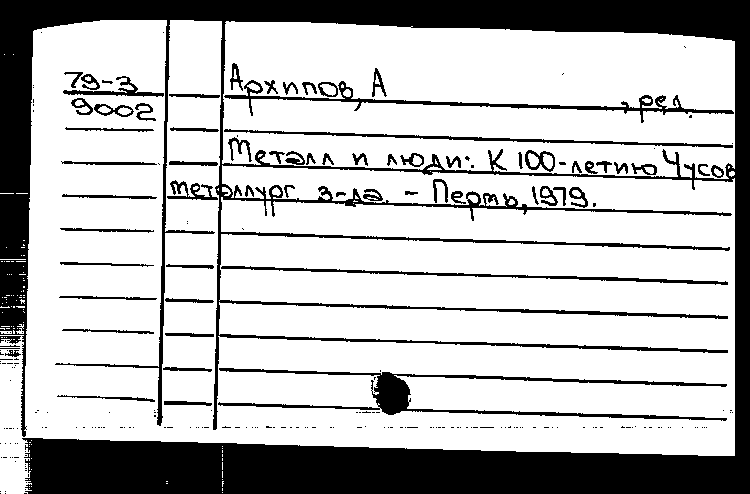 79-3 Архипов, А , ред.
9002
Металл и люди: К 100-летию Чусов
металлург. з-да. - Пермь, 1979.